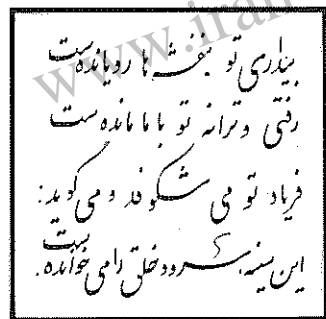 بیداری تو بنفشه‌ها رویانده‌ست
رفتی و ترانه تو با ما مانده‌ست
فریاد تو می شکوفد و می گوید:
این سینه، سرود خلق را می خوانده‌ست.
www.iran